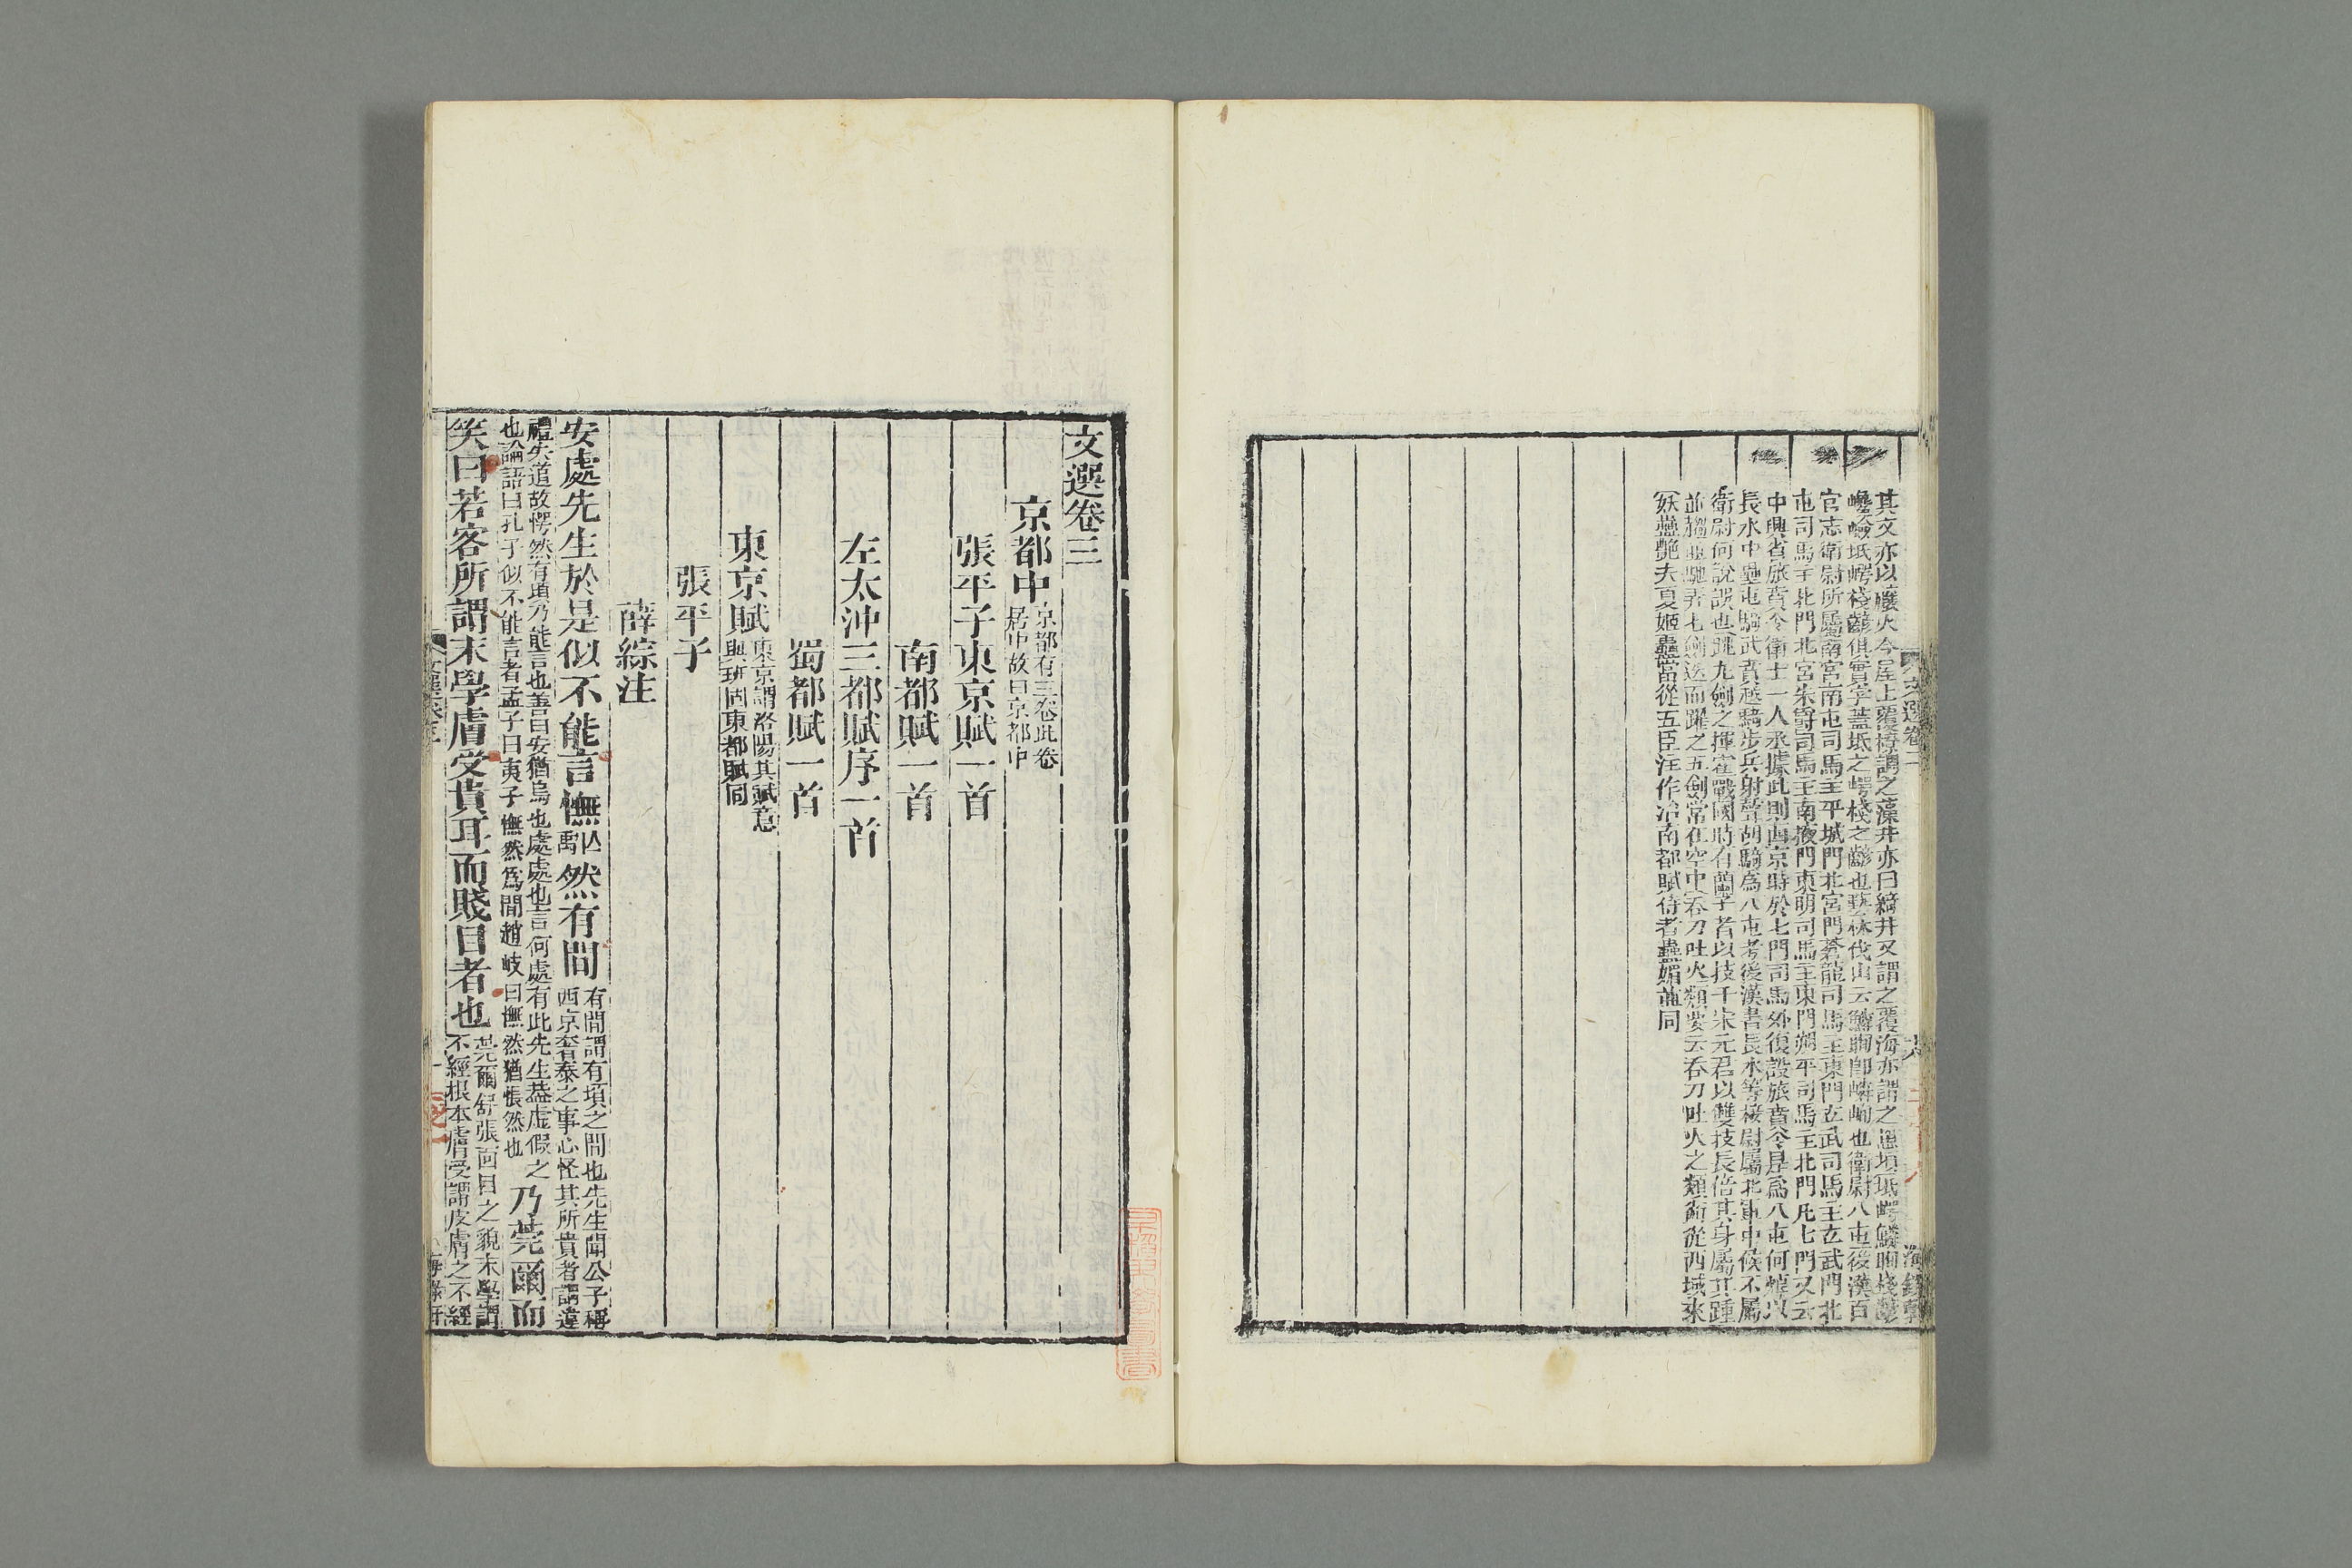 其文亦以禳火今屋上覆橑謂之藻井亦曰綺井又謂之覆海亦謂之罳頂坻崿鱗眴棧齴
巉嶮坻崿棧齴俱實字蓋坻之崿棧之齴也藝林伐山云鱗眴即嶙峋也衛尉八屯後漢百
官志衛尉所屬南宮南屯司馬主平城門北宮門蒼龍司馬主東門玄武司馬主玄武門北
屯司馬主北門北宮朱爵司馬主南掖門東明司馬主東門朔平司馬主北門凡七門又云
中興省旅賁令衛士一人丞據此則西京時於七門司馬外復設旅賁令是爲八屯何焯以
長水中壘屯騎武賁越騎步兵射聲胡騎爲八屯考後漢書長水等校尉屬北軍中候不屬
衛尉何說誤也跳丸劍之揮霍戰國時有蘭子者以技干宋元君以雙技長倍其身屬其踵
並趨並馳弄七劍迭而躍之五劍常在空中吞刀吐火類要云吞刀吐火之類前從西域來
妖蠱艷夫夏姬蠱當從五臣注作冶南都賦侍者蠱媚並同
文選卷二
海錄軒
文選卷三
京都中京都有三卷此卷居中故曰京都中
張平子東京賦一首
南都賦一首
左太沖三都賦序一首
蜀都賦一首
東京賦東京謂洛陽其賦意與班固東都賦同
張平子
薛綜注
安處先生於是似不能言憮然有間有間謂有頃之間也先生聞公子稱西京奢泰之事心怪其所貴者謂違
禮失道故愕然有頃乃能言也善曰安猶烏也處處也言何處有此先生蓋虛假之也論語曰孔子似不能言者孟子曰夷子憮然爲間趙岐曰憮然猶悵然也乃莞爾而
笑曰若客所謂末學膚受貴耳而賤目者也莞爾舒張面目之貌末學謂不經根本膚受謂皮膚之不經
文選卷三
一
海錄軒